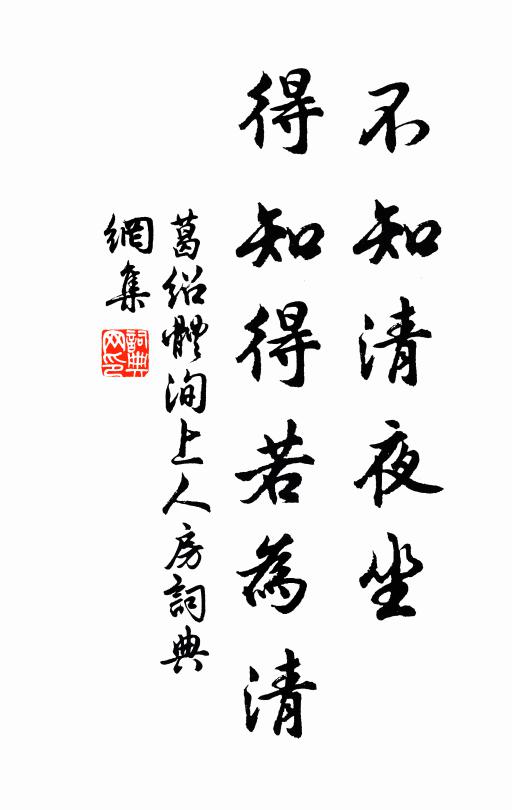 不知清夜坐
得知得若為清
葛紹體洵上人房詞典
網集
詞典网印